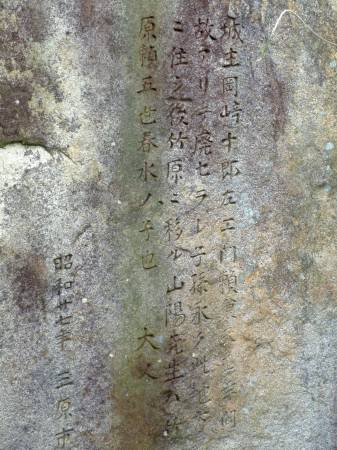 城主岡崎十郎左エ門頼
故アリテ廃セラレ子孫永ク此地
ニ住之後竹原ニ移ル山陽先生ハ竹
原頼五世春水ノ子也 大人
昭和廿七年 三原市